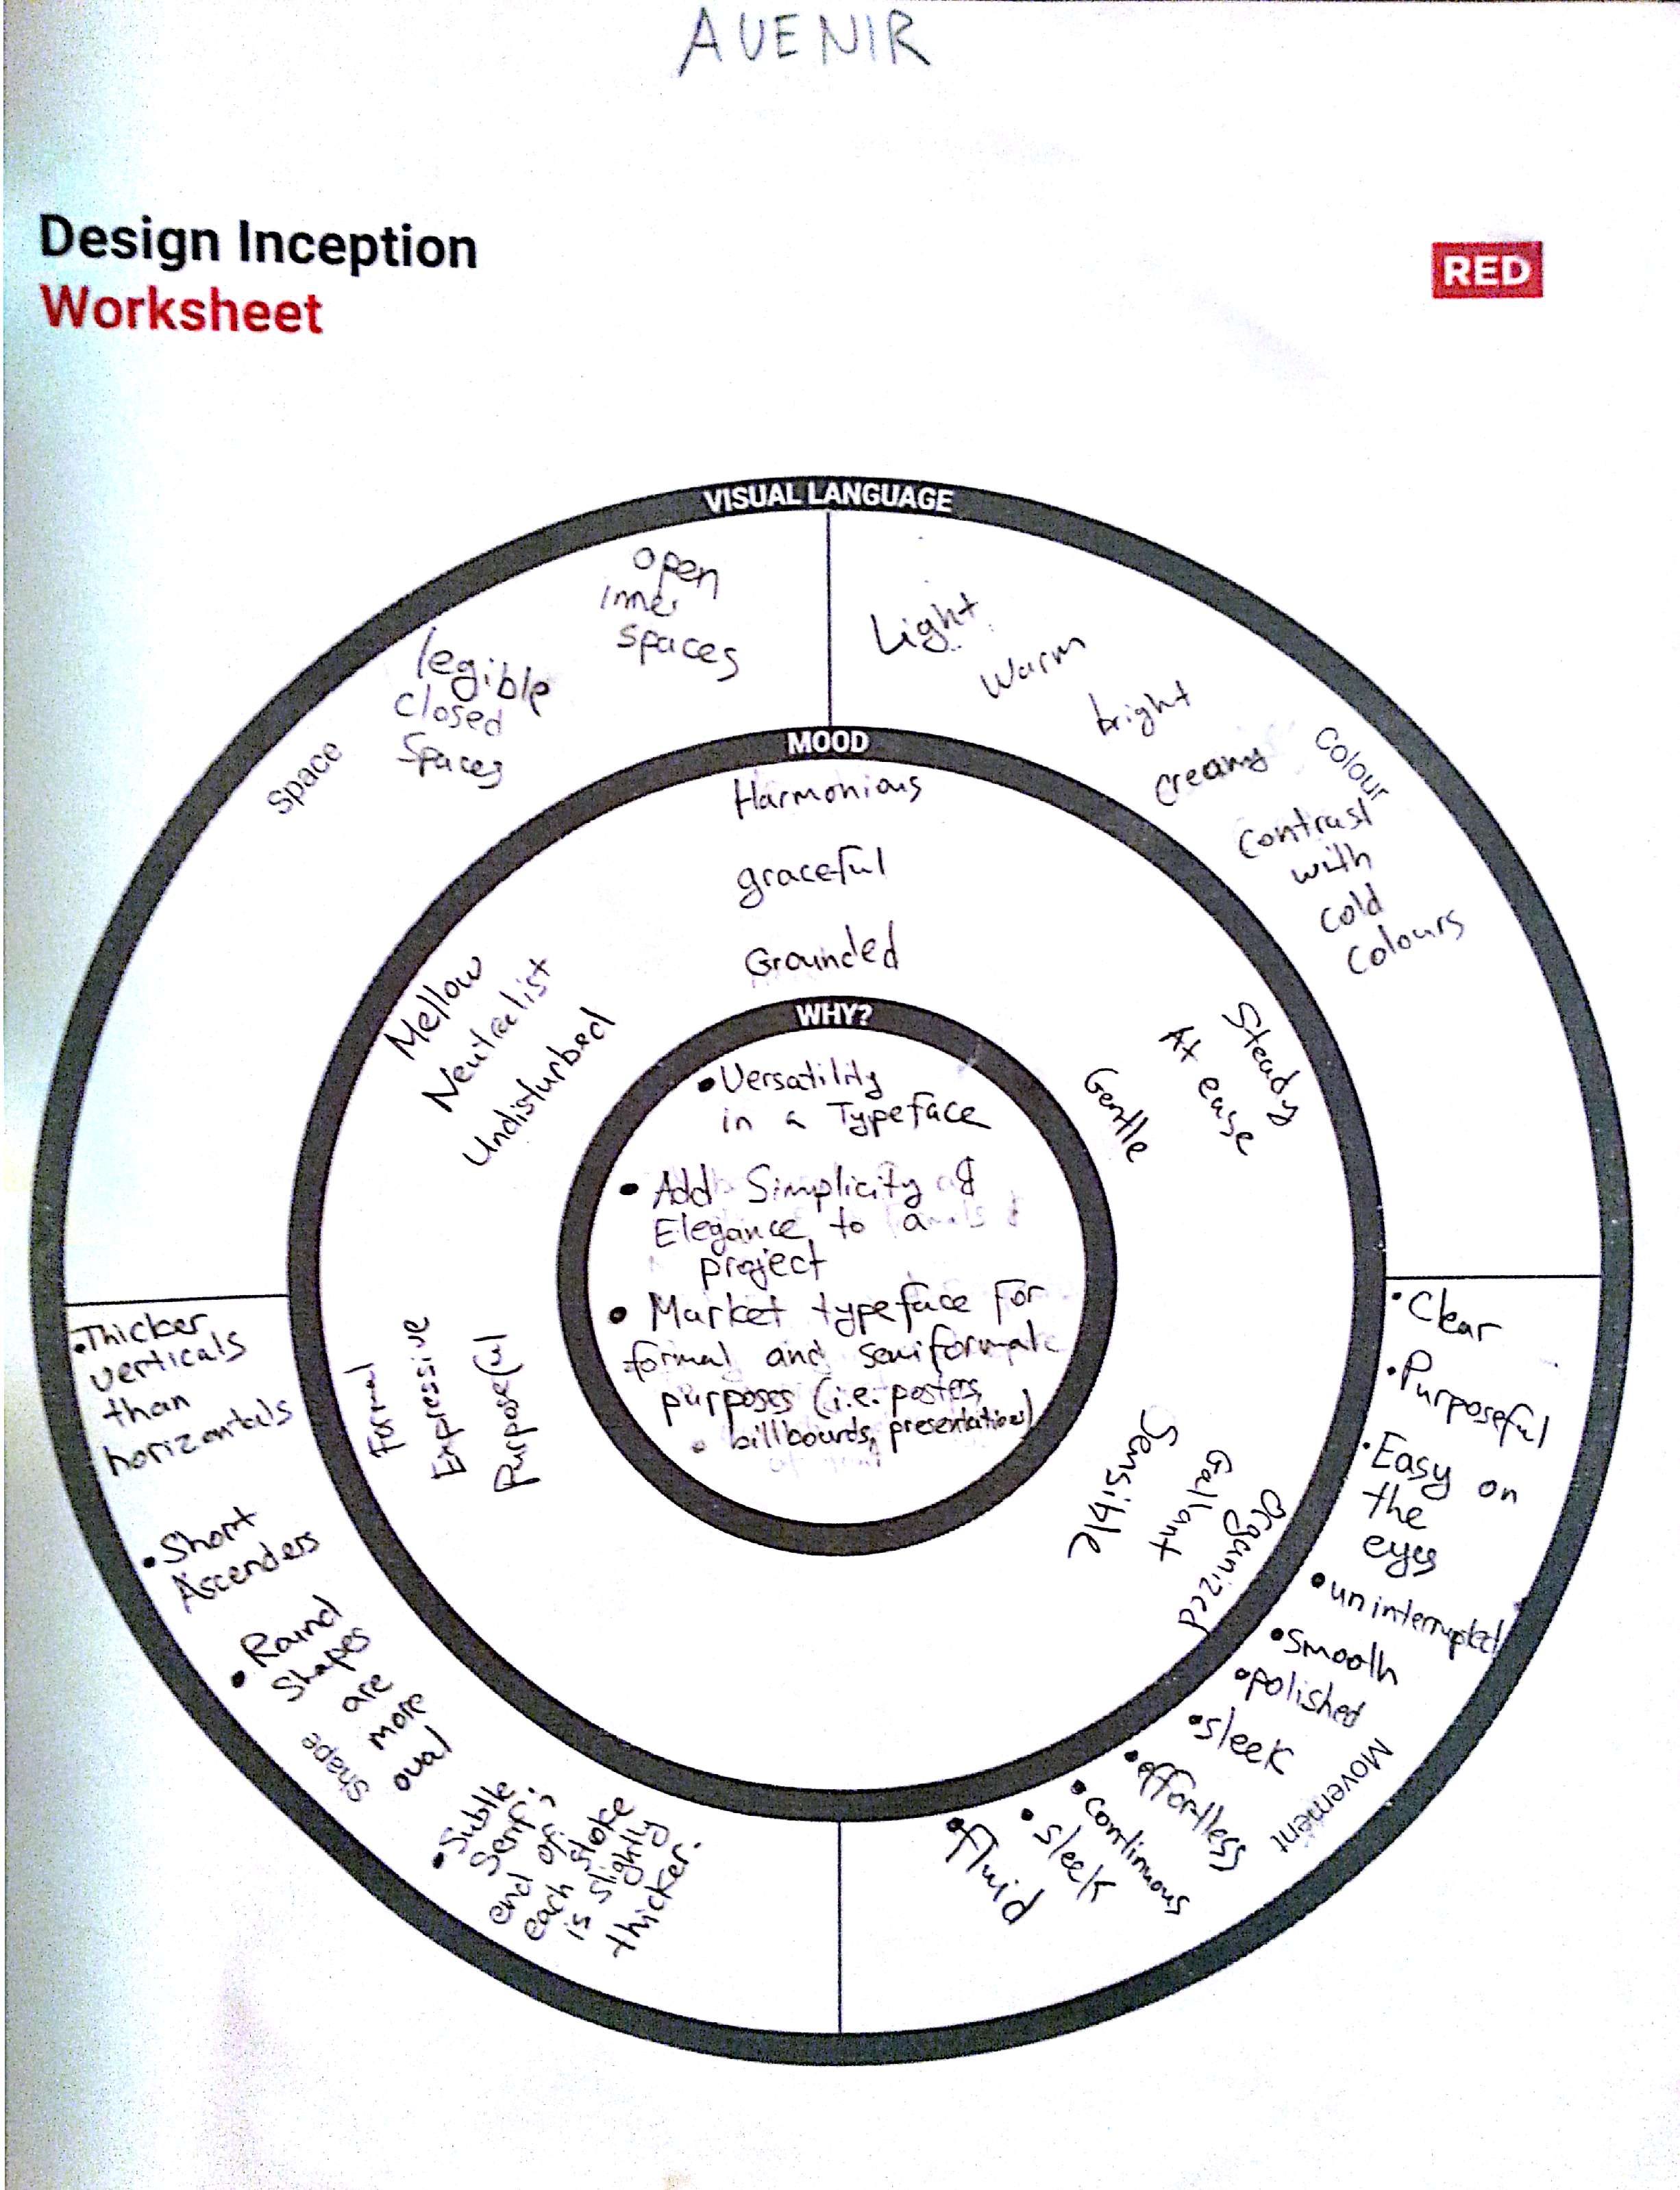 AVENIR
Design Inception
Worksheet
RED
VISUAL LANGUAGE
open
inner
spaces
legible
closed
spaces
Space
Light
warm
bright
creamy
Colour
contrast
with
cold
colours
MOOD
Harmonious
graceful
Grounded
Mellow
Neutralist
Undisturbed
Steady
At ease
Gentle
Formal
Expressive
Purposeful
Sensible
Gallant
Oraganized
WHY?
• Versatility
in a Typeface
• Add Simplicity &
Elegance to a
project
• Market typeface for
formal and semiformal
purposes (i.e. posters,
• billbourds, presentations)
• Thicker
verticals
than
horizontals
• Short
Ascenders
• Round
shapes
are
more
oval
Shape
• Subtle
serif;
end of
each stoke
is slightly
thicker.
• Clear
• Purposeful
• Easy on
the
eyes
• uninterrupted
• smooth
• polished
• sleek
• effortless
• continuous
• sleek
• fluid
Movement